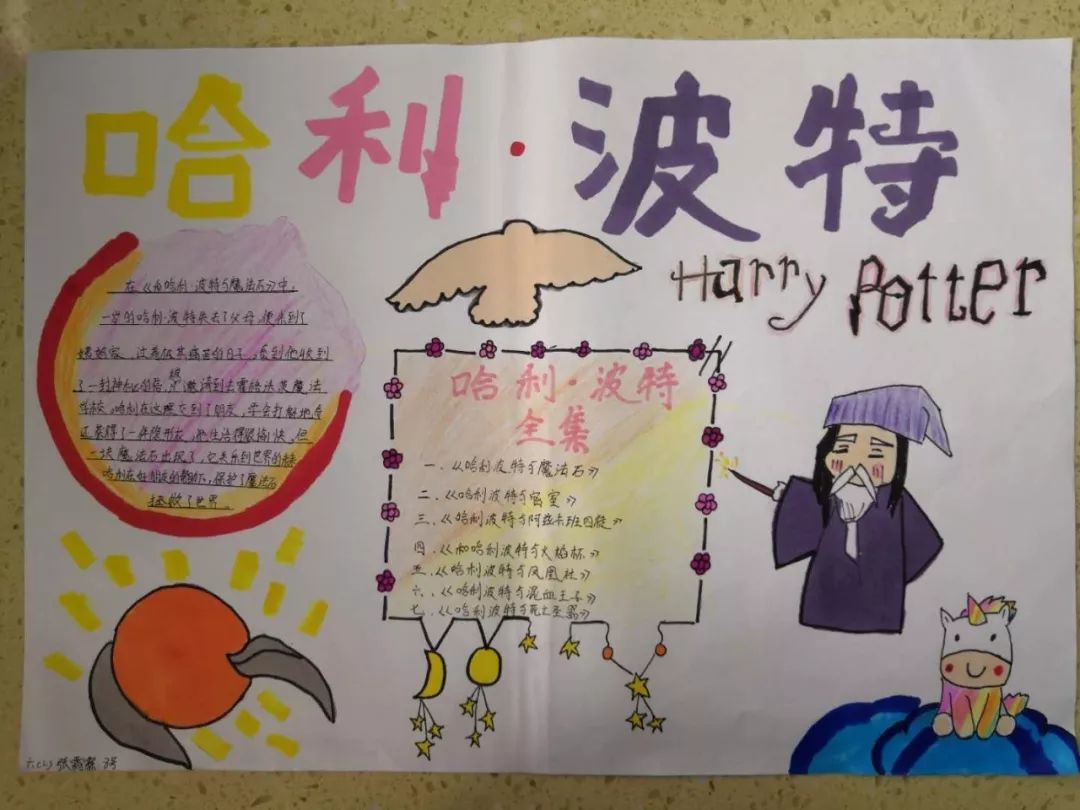 哈利·波特
Harry Potter
在《和哈利·波特与魔法石》中，
一岁的哈利·波特失去了父母，便来到了
姨妈家，过着极其痛苦的日子，直到他收到
了一封神秘的信，被邀请到去霍格沃茨魔法
学校，哈利在这里交到了朋友，学会打魁地奇
还获得了一件隐形衣，他生活得很愉快，但
一块魔法石出现了，它关乎到世界的
哈利在他朋友的帮助下，保护了魔法石
拯救了世界。
哈利·波特
全集
一、《哈利波特与魔法石》
二、《哈利波特与密室》
三、《哈利波特与阿兹卡班囚徒》
四、《和哈利波特与火焰杯》
五、《哈利波特与凤凰社》
六、《哈利波特与混血王子》
七、《哈利波特与死亡圣器》
六(2) 张 3号